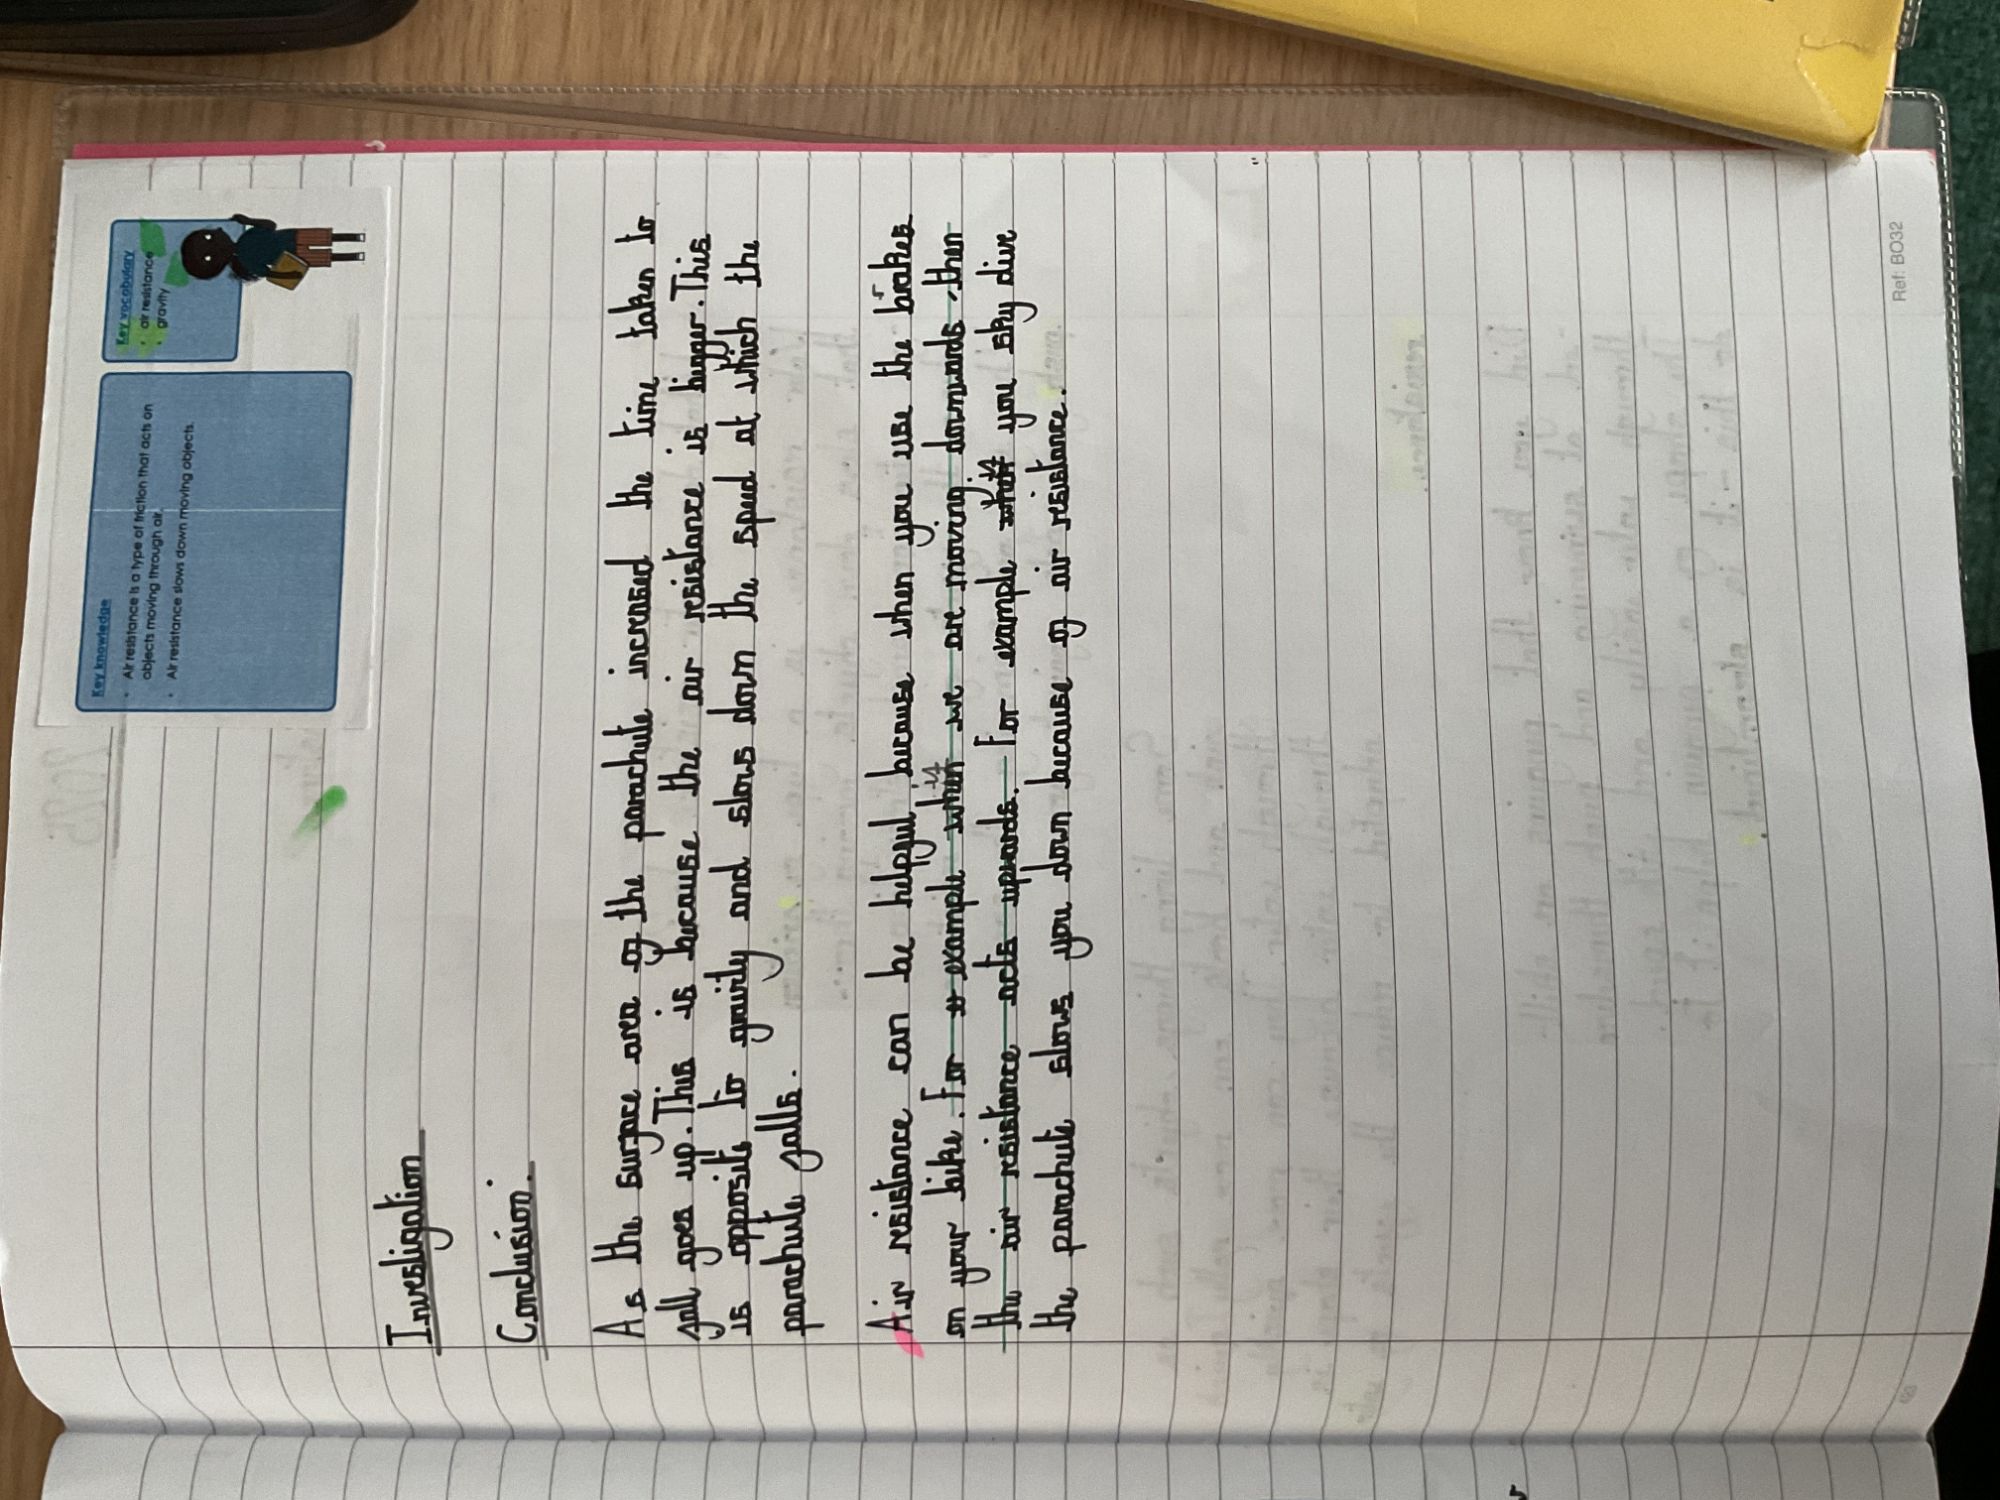 Key knowledge
• Air resistance is a type of friction that acts on
objects moving through air.
• Air resistance slows down moving objects.
Key vocabulary
• air resistance
• gravity
Investigation
Conclusion.
As the surface area of the parachute increased the time taken to
fall goes up. This is because the air resistance is bigger. This
is opposite to gravity and slows down the speed at which the
parachute falls.
Air resistance can be helpful because when you use the brakes
on your bike. For example when if we are moving downwards then
the air resistance acts upwards. For example when if you sky dive
the parachute slows you down because of air resistance.
Ref: BO32